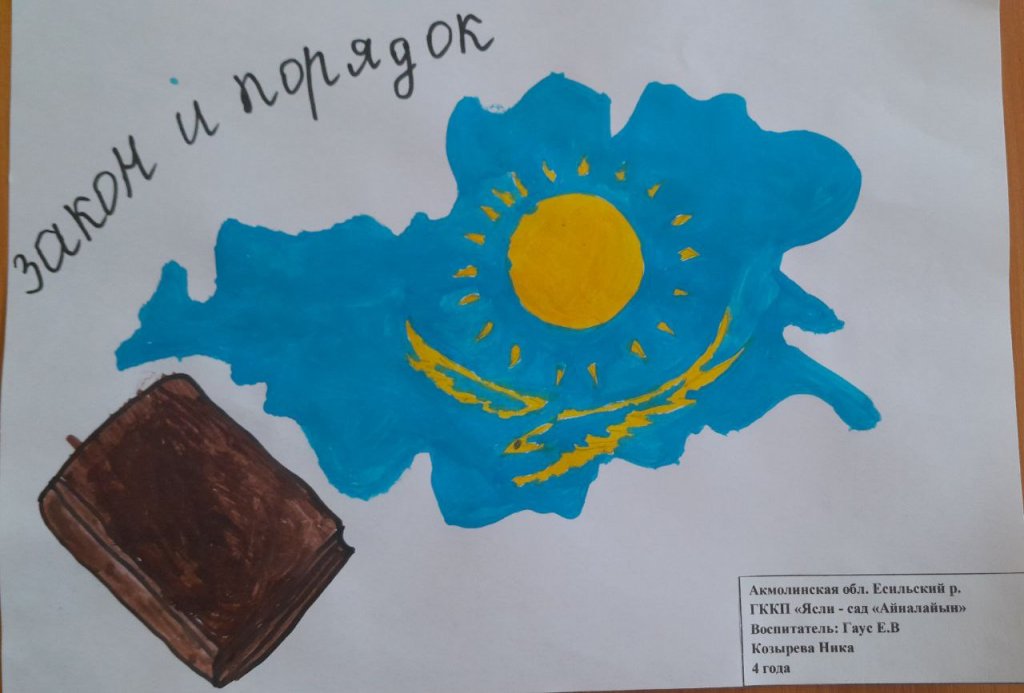 закон и порядок
Акмолинская обл. Есильский р.
ГККП «Ясли - сад «Айналайын»
Воспитатель: Гаус Е.В
Козырева Ника
4 года